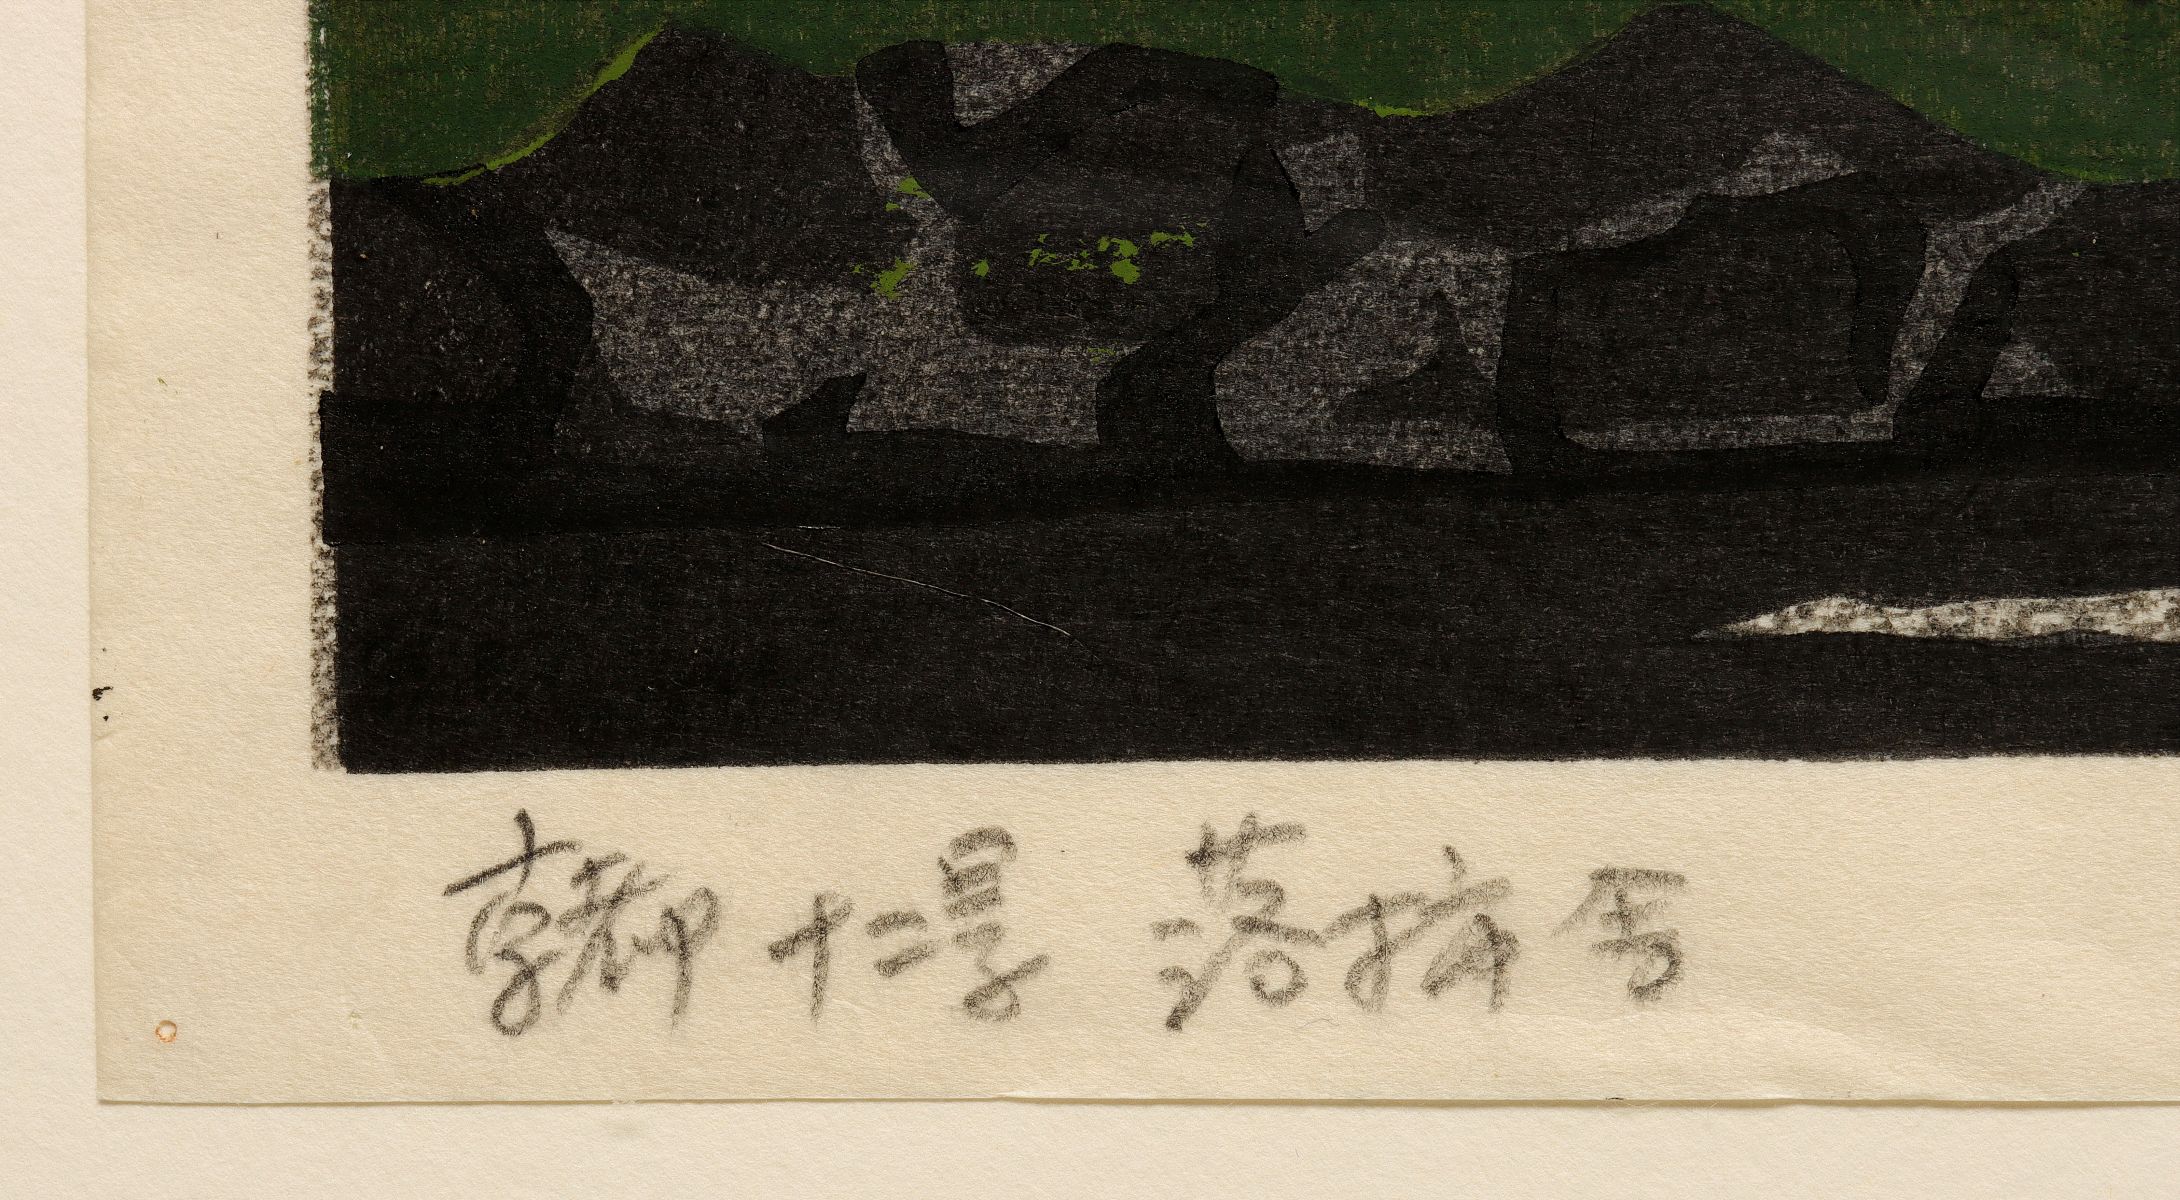 京都十二景 落柿舎